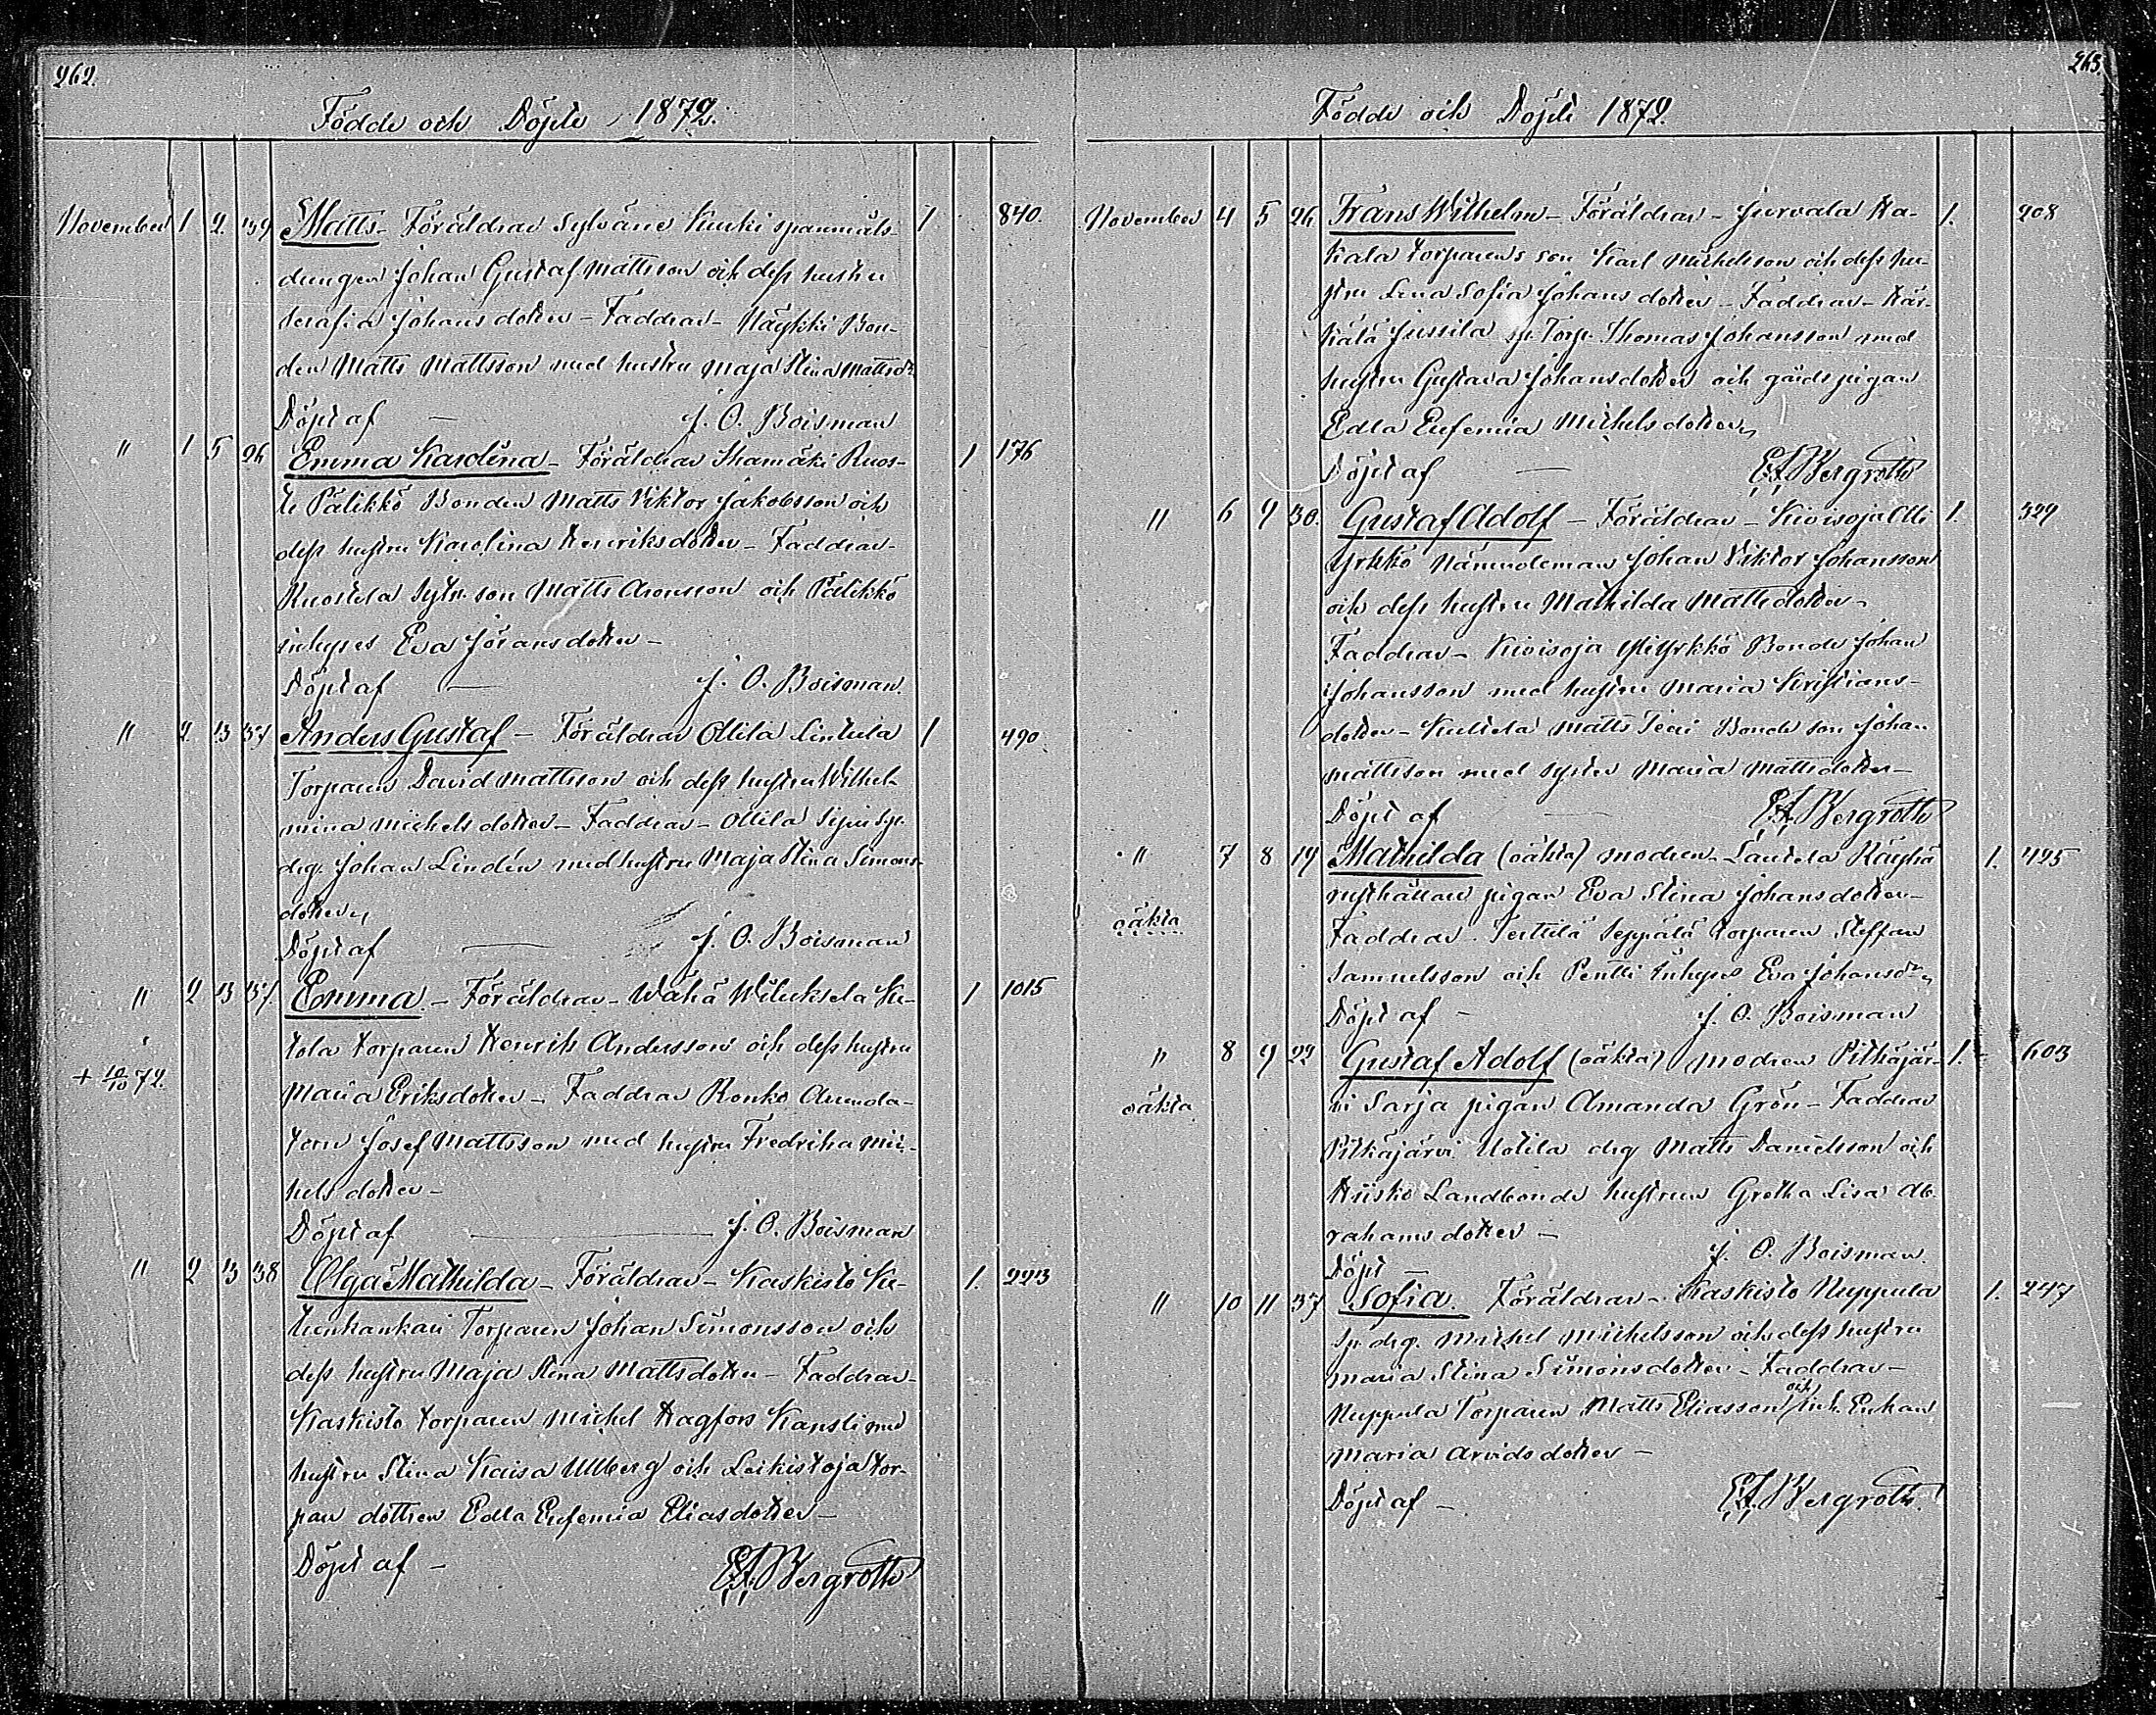 262.
Födde och Döpte 1872.
November 1 2 39 Matts - Föräldrar Sylvänä Kuuki spannmåls- 1 840.
drengen Johan Gustaf Mattsson och dess hustru
Serafia Johansdotter - Faddrar - Näykki Bon-
den Matts Mattsson med hustru Maja Stina Mattsdr
Döpt af — J. O. Boisman
" 1 5 26 Emma Karolina - Föräldrar Ruos- 1 176
te Pälikkö Bonden Matts Viktor Jakobsson och
dess hustru Karolina Henriksdotter - Faddrar -
Ruostela Sytn. son Matts Aronsson och Pälikkö
inhyses Eva Jöransdotter -
Döpt af — J. O. Boisman.
" 2 3 37 Anders Gustaf - Föräldrar Ollila Lintula 1 490
Torparen David Mattsson och dess hustru Wilhel-
mina Michelsdotter - Faddrar - Ollila
drg. Johan Lindén med hustru Maja Stina Simons-
dotter,
Döpt af — J. O. Boisman
" 2 3 37 Emma - Föräldrar - Wähä Wiluksela Ku- 1 1015
+ 10/10 72.
tola torparen Henrik Andersson och dess hustru
Maria Eriksdotter - Faddrar Ronko Arenda-
torn Josef Mattsson med hustru Fredrika Mic-
helsdotter -
Döpt af — J. O. Boisman
" 2 3 38 Olga Mathilda - Föräldrar - Kaskisto 1. 223
Torparen Johan Simonsson och
dess hustru Maja Stina Mattsdotter - Faddrar -
Kaskisto torparen Michel Hagfors Kansli med
hustru Stina Kaisa Ullberg och Leikistoja tor-
pare dottren Edla Eufemia Eliasdotter -
Döpt af — E.F. Bergroth
263.
Födde och Döpte 1872.
November 4 5 26 Frans Wilhelm - Föräldrar - Jurvala Ka- 1. 208
kala torparens son Karl Michelsson och dess hu-
stru Lena Sofia Johansdotter - Faddrar - Kär-
kälä Jussila sp. Torp. Thomas Johansson med
hustru Gustava Johansdotter och gårdspigan
Edla Eufemia Michelsdotter,
Döpt af — E.F. Bergroth
" 6 9 30. Gustaf Adolf - Föräldrar - Kivisoja Ali 1. 329
Yrkkö Nämndeman Johan Viktor Johansson
och dess hustru Mathilda Mattsdotter -
Faddrar - Kivisoja Yli Yrkkö Bonde Johan
Johansson med hustru Maria Kristians-
dotter - Kultela Matts Teeri Bonde son Johan
Mattsson med syster Maria Mattsdotter -
Döpt af — E.F. Bergroth
" 7 8 19 Mathilda (oäkta) modren - Sautela Räyhä 1. 425
oäkta
rusthållare pigan Eva Stina Johansdotter -
Faddrar - Terttilä Seppälä torparen Steffan
Samuelsson och Pentti Inhyses Eva Johansdr,
Döpt af - J. O. Boisman
" 8 9 22 Gustaf Adolf (oäkta) modren Pitkäjär- 1. 603
oäkta
vi Sarja pigan Amanda Grön - Faddrar
Pitkäjärvi Uotila drg Matts Danielsson och
Hiisko Landbonde hustrun Gretha Lisa Ab-
rahamsdotter -
Döpt — J. O. Boisman
" 10 11 37 Sofia. Föräldrar - Kaskisto Nuppula 1. 247
Sp. drg. Michel Michelsson och dess hustru
Maria Stina Simonsdotter - Faddrar -
Nuppula Torparen Matts Eliasson och Inh. Enkan
Maria Arvidsdotter -
Döpt af - E.F. Bergroth.